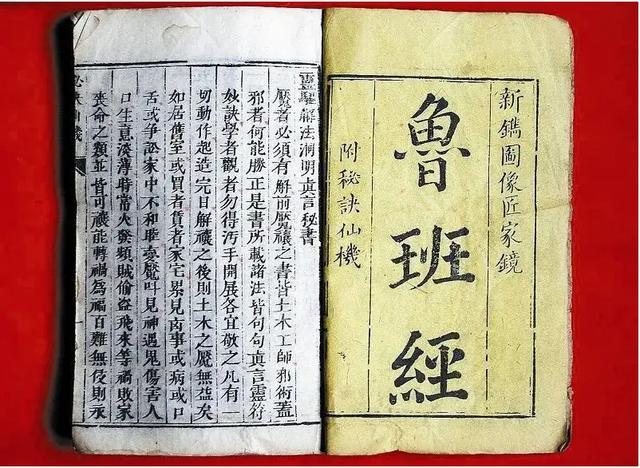 新鐫圖像匠家鏡
魯班經
附秘訣仙機
靈驅解法洞明眞言秘書
魘者必須有解前魘禳之書皆土木工師邪術蓋
邪者何能勝正是書所載諸法皆句句眞言靈符
妙訣學者觀者勿得汚手開展各宜敬之凡有一
切動作起造完日解禳之後則土木之魘無益矣
如居舊室或買者賃者家宅累見㐫事或病或口
舌或爭訟家中不和睡夢魘吐見神遇鬼傷害人
口生意淡薄時當火發頻賊偷盜飛來等禍敗家
喪命之類並皆可禳能轉禍為福百難無侵則永